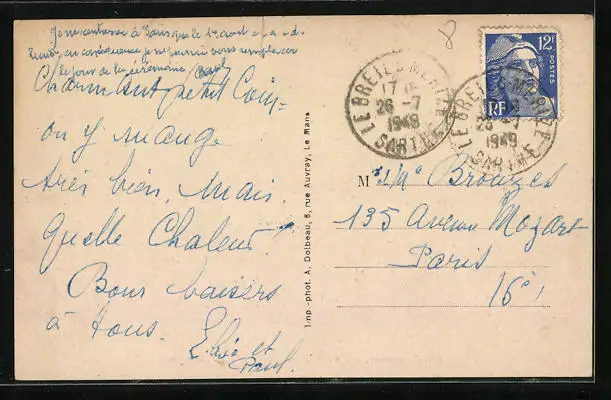 Je ne rentrerai à Paris que le 1er août
en conséquence je ne pourrai vous remplacer
le jour de la cérémonie. Paul
Charmant petit Coin,
on y mange
très bien, mais
quelle Chaleur!
Bons baisers
à tous.
et
Paul.
Imp.-phot. A. Dolbeau, 6, rue Auvray, Le Mans
8
LE BREIL S. MERIZE
17
26 -7
1949
SARTHE
LE BREIL S. MERIZE
26 -7
1949
SARTHE
12F
POSTES
RF
Mr & Me Brouzes
135 Avenue Mozart
Paris
16e